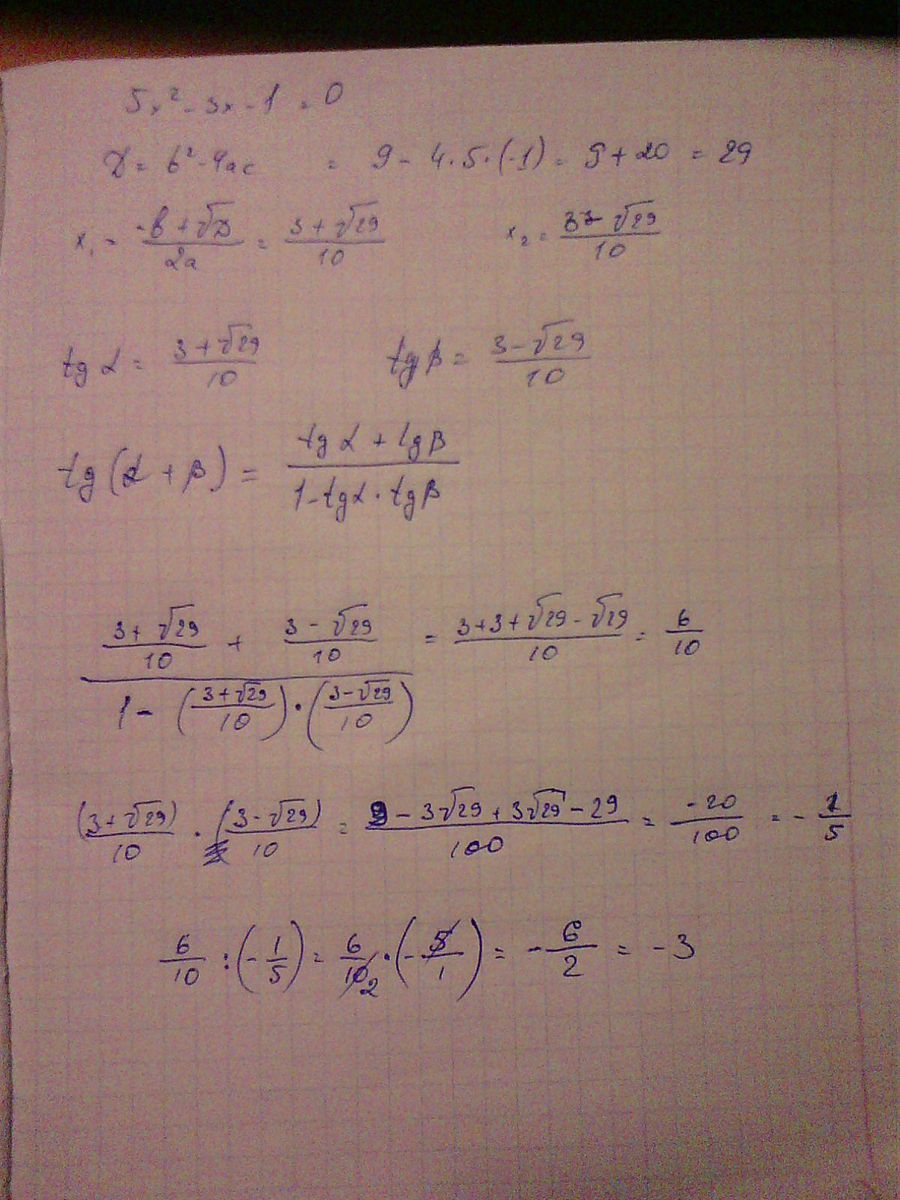 5x² - 3x - 1 = 0
D = b² - 4ac = 9 - 4·5·(-1) = 9 + 20 = 29
x₁ = (-b + √D)/(2a) = (3 + √29)/10 x₂ = (3 - √29)/10
tg α = (3 + √29)/10 tg β = (3 - √29)/10
tg (α + β) = (tg α + tg β)/(1 - tg α · tg β)
((3 + √29)/10 + (3 - √29)/10)/(1 - ((3 + √29)/10)·((3 - √29)/10)) = (3 + 3 + √29 - √29)/10 = 6/10
(3 + √29)/10 · (3 - √29)/10 = (9 - 3√29 + 3√29 - 29)/100 = -20/100 = -1/5
6/10 : (-1/5) = 6/10 2 · (-5/1) = -6/2 = -3